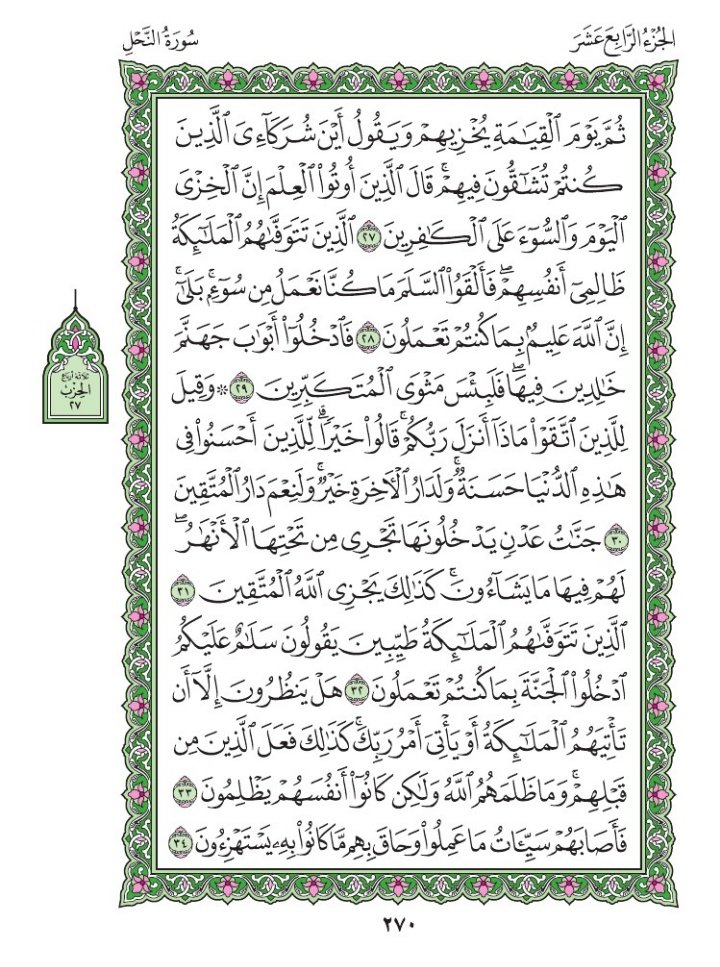 الجزء الرابع عشر
سورة النحل
ثُمَّ يَوْمَ ٱلْقِيَٰمَةِ يُخْزِيهِمْ وَيَقُولُ أَيْنَ شُرَكَآءِىَ ٱلَّذِينَ
كُنتُمْ تُشَٰٓقُّونَ فِيهِمْ ۚ قَالَ ٱلَّذِينَ أُوتُوا۟ ٱلْعِلْمَ إِنَّ ٱلْخِزْىَ
ٱلْيَوْمَ وَٱلسُّوٓءَ عَلَى ٱلْكَٰفِرِينَ ٢٧ ٱلَّذِينَ تَتَوَفَّىٰهُمُ ٱلْمَلَٰٓئِكَةُ
ظَالِمِىٓ أَنفُسِهِمْ ۖ فَأَلْقَوُا۟ ٱلسَّلَمَ مَا كُنَّا نَعْمَلُ مِن سُوٓءٍۭ ۚ بَلَىٰٓ ۚ
إِنَّ ٱللَّهَ عَلِيمٌۢ بِمَا كُنتُمْ تَعْمَلُونَ ٢٨ فَٱدْخُلُوٓا۟ أَبْوَٰبَ جَهَنَّمَ
خَٰلِدِينَ فِيهَا ۖ فَلَبِئْسَ مَثْوَى ٱلْمُتَكَبِّرِينَ ٢٩ ۞ وَقِيلَ
لِلَّذِينَ ٱتَّقَوْا۟ مَاذَآ أَنزَلَ رَبُّكُمْ ۚ قَالُوا۟ خَيْرًا ۗ لِّلَّذِينَ أَحْسَنُوا۟ فِى
هَٰذِهِ ٱلدُّنْيَا حَسَنَةٌ ۚ وَلَدَارُ ٱلْءَاخِرَةِ خَيْرٌ ۚ وَلَنِعْمَ دَارُ ٱلْمُتَّقِينَ
٣٠ جَنَّٰتُ عَدْنٍ يَدْخُلُونَهَا تَجْرِى مِن تَحْتِهَا ٱلْأَنْهَٰرُ ۖ
لَهُمْ فِيهَا مَا يَشَآءُونَ ۚ كَذَٰلِكَ يَجْزِى ٱللَّهُ ٱلْمُتَّقِينَ ٣١
ٱلَّذِينَ تَتَوَفَّىٰهُمُ ٱلْمَلَٰٓئِكَةُ طَيِّبِينَ يَقُولُونَ سَلَٰمٌ عَلَيْكُمُ
ٱدْخُلُوا۟ ٱلْجَنَّةَ بِمَا كُنتُمْ تَعْمَلُونَ ٣٢ هَلْ يَنظُرُونَ إِلَّآ أَن
تَأْتِيَهُمُ ٱلْمَلَٰٓئِكَةُ أَوْ يَأْتِىَ أَمْرُ رَبِّكَ ۚ كَذَٰلِكَ فَعَلَ ٱلَّذِينَ مِن
قَبْلِهِمْ ۚ وَمَا ظَلَمَهُمُ ٱللَّهُ وَلَٰكِن كَانُوٓا۟ أَنفُسَهُمْ يَظْلِمُونَ ٣٣
فَأَصَابَهُمْ سَيِّـَٔاتُ مَا عَمِلُوا۟ وَحَاقَ بِهِم مَّا كَانُوا۟ بِهِۦ يَسْتَهْزِءُونَ ٣٤
ثلاثة أرباع
الحزب
٢٧
٢٧٠